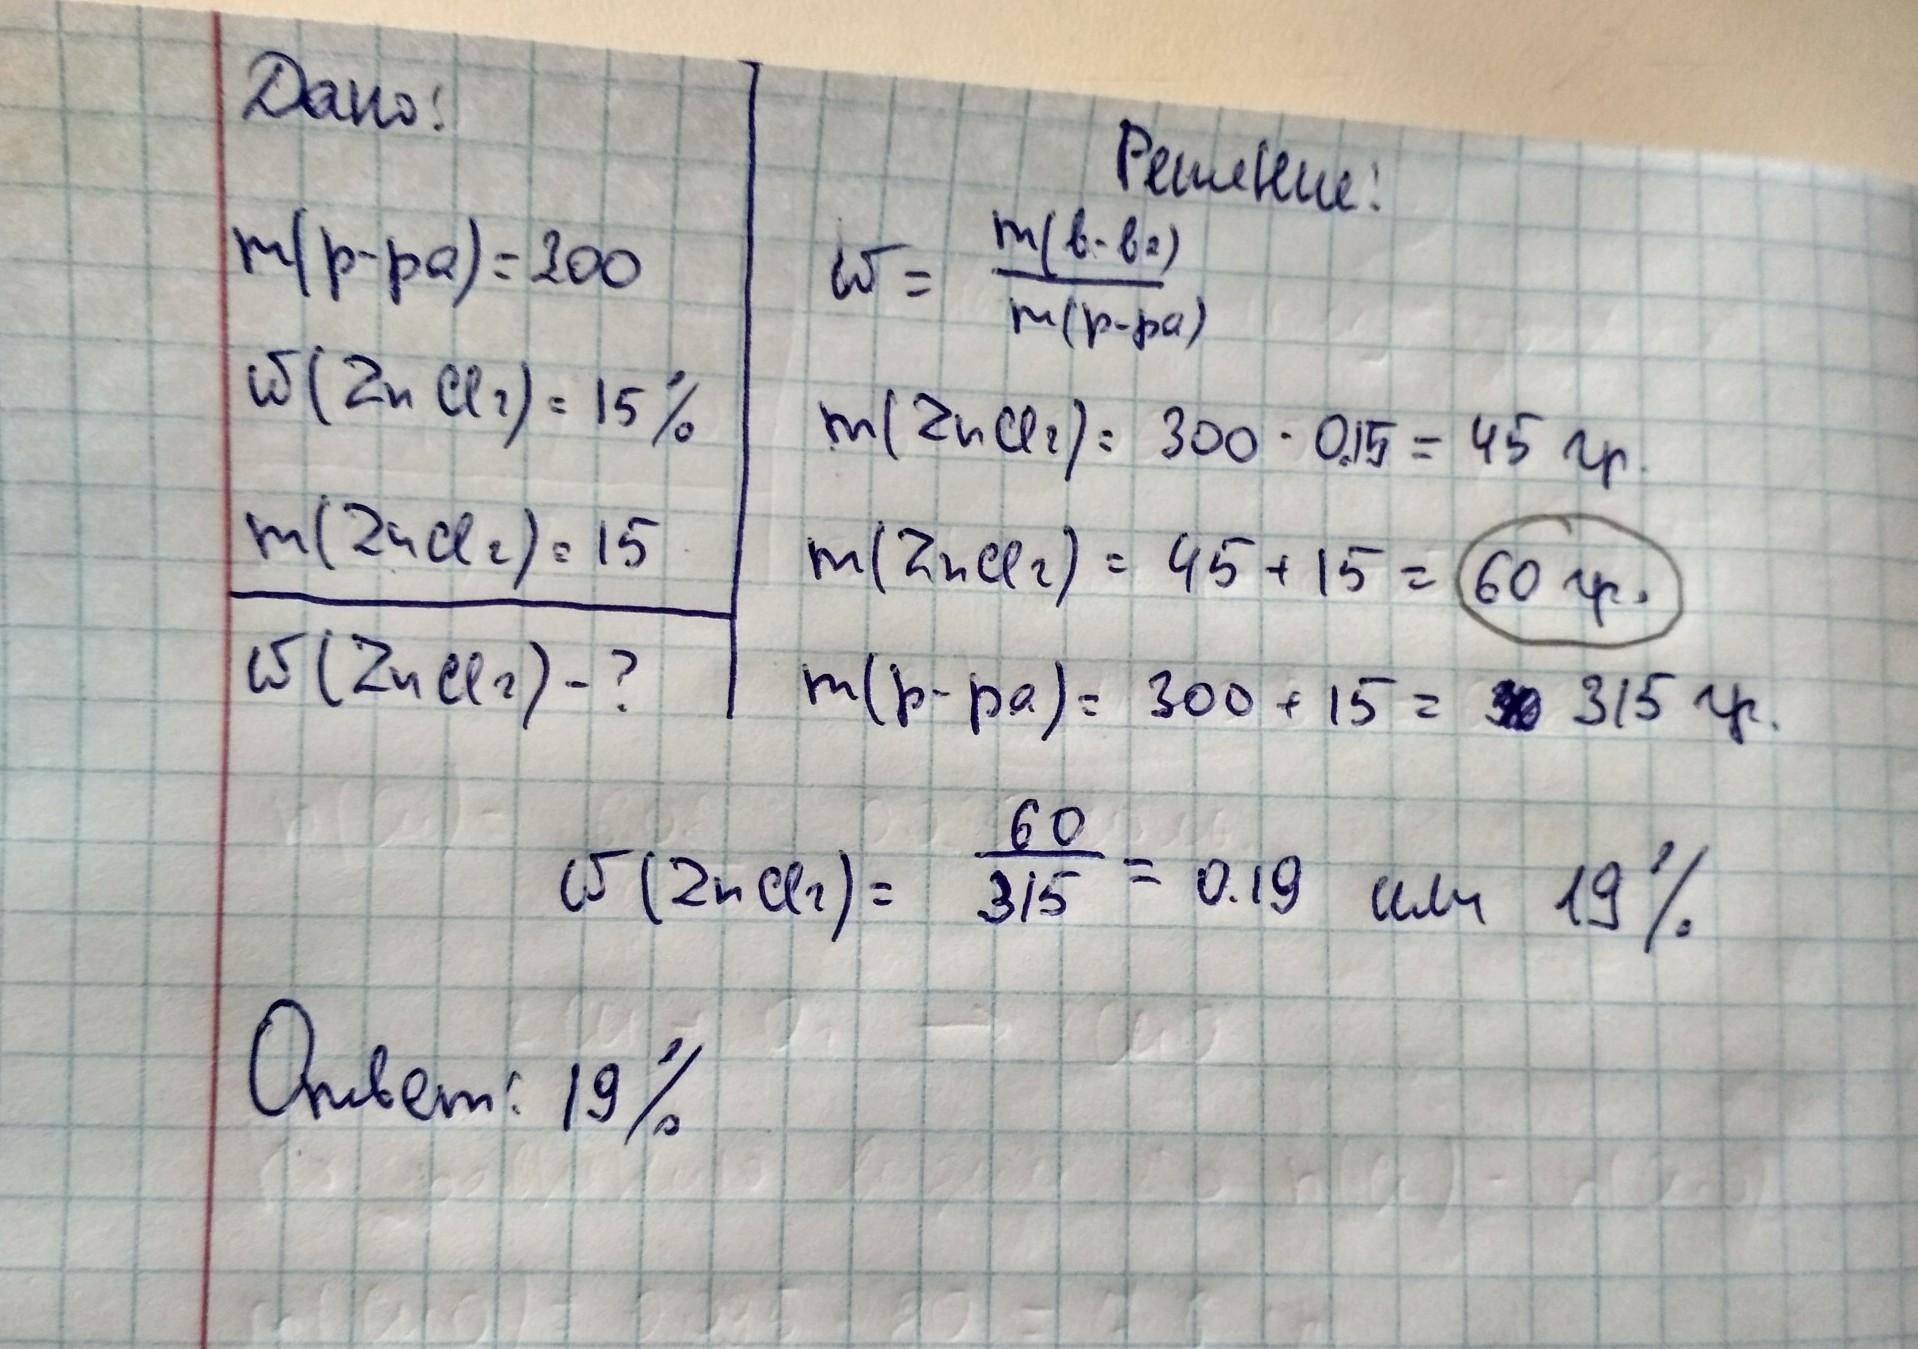 Дано:
m(р-ра)=300
ω(ZnCl₂)=15%
m(ZnCl₂)=15
ω(ZnCl₂)-?
Решение:
ω = m(в-ва)
m(р-ра)
m(ZnCl₂)= 300 · 0.15 = 45 гр.
m(ZnCl₂) = 45 + 15 = 60 гр.
m(р-ра)= 300 + 15 = 315 гр.
ω(ZnCl₂)= 60/315 = 0.19 или 19%
Ответ: 19%